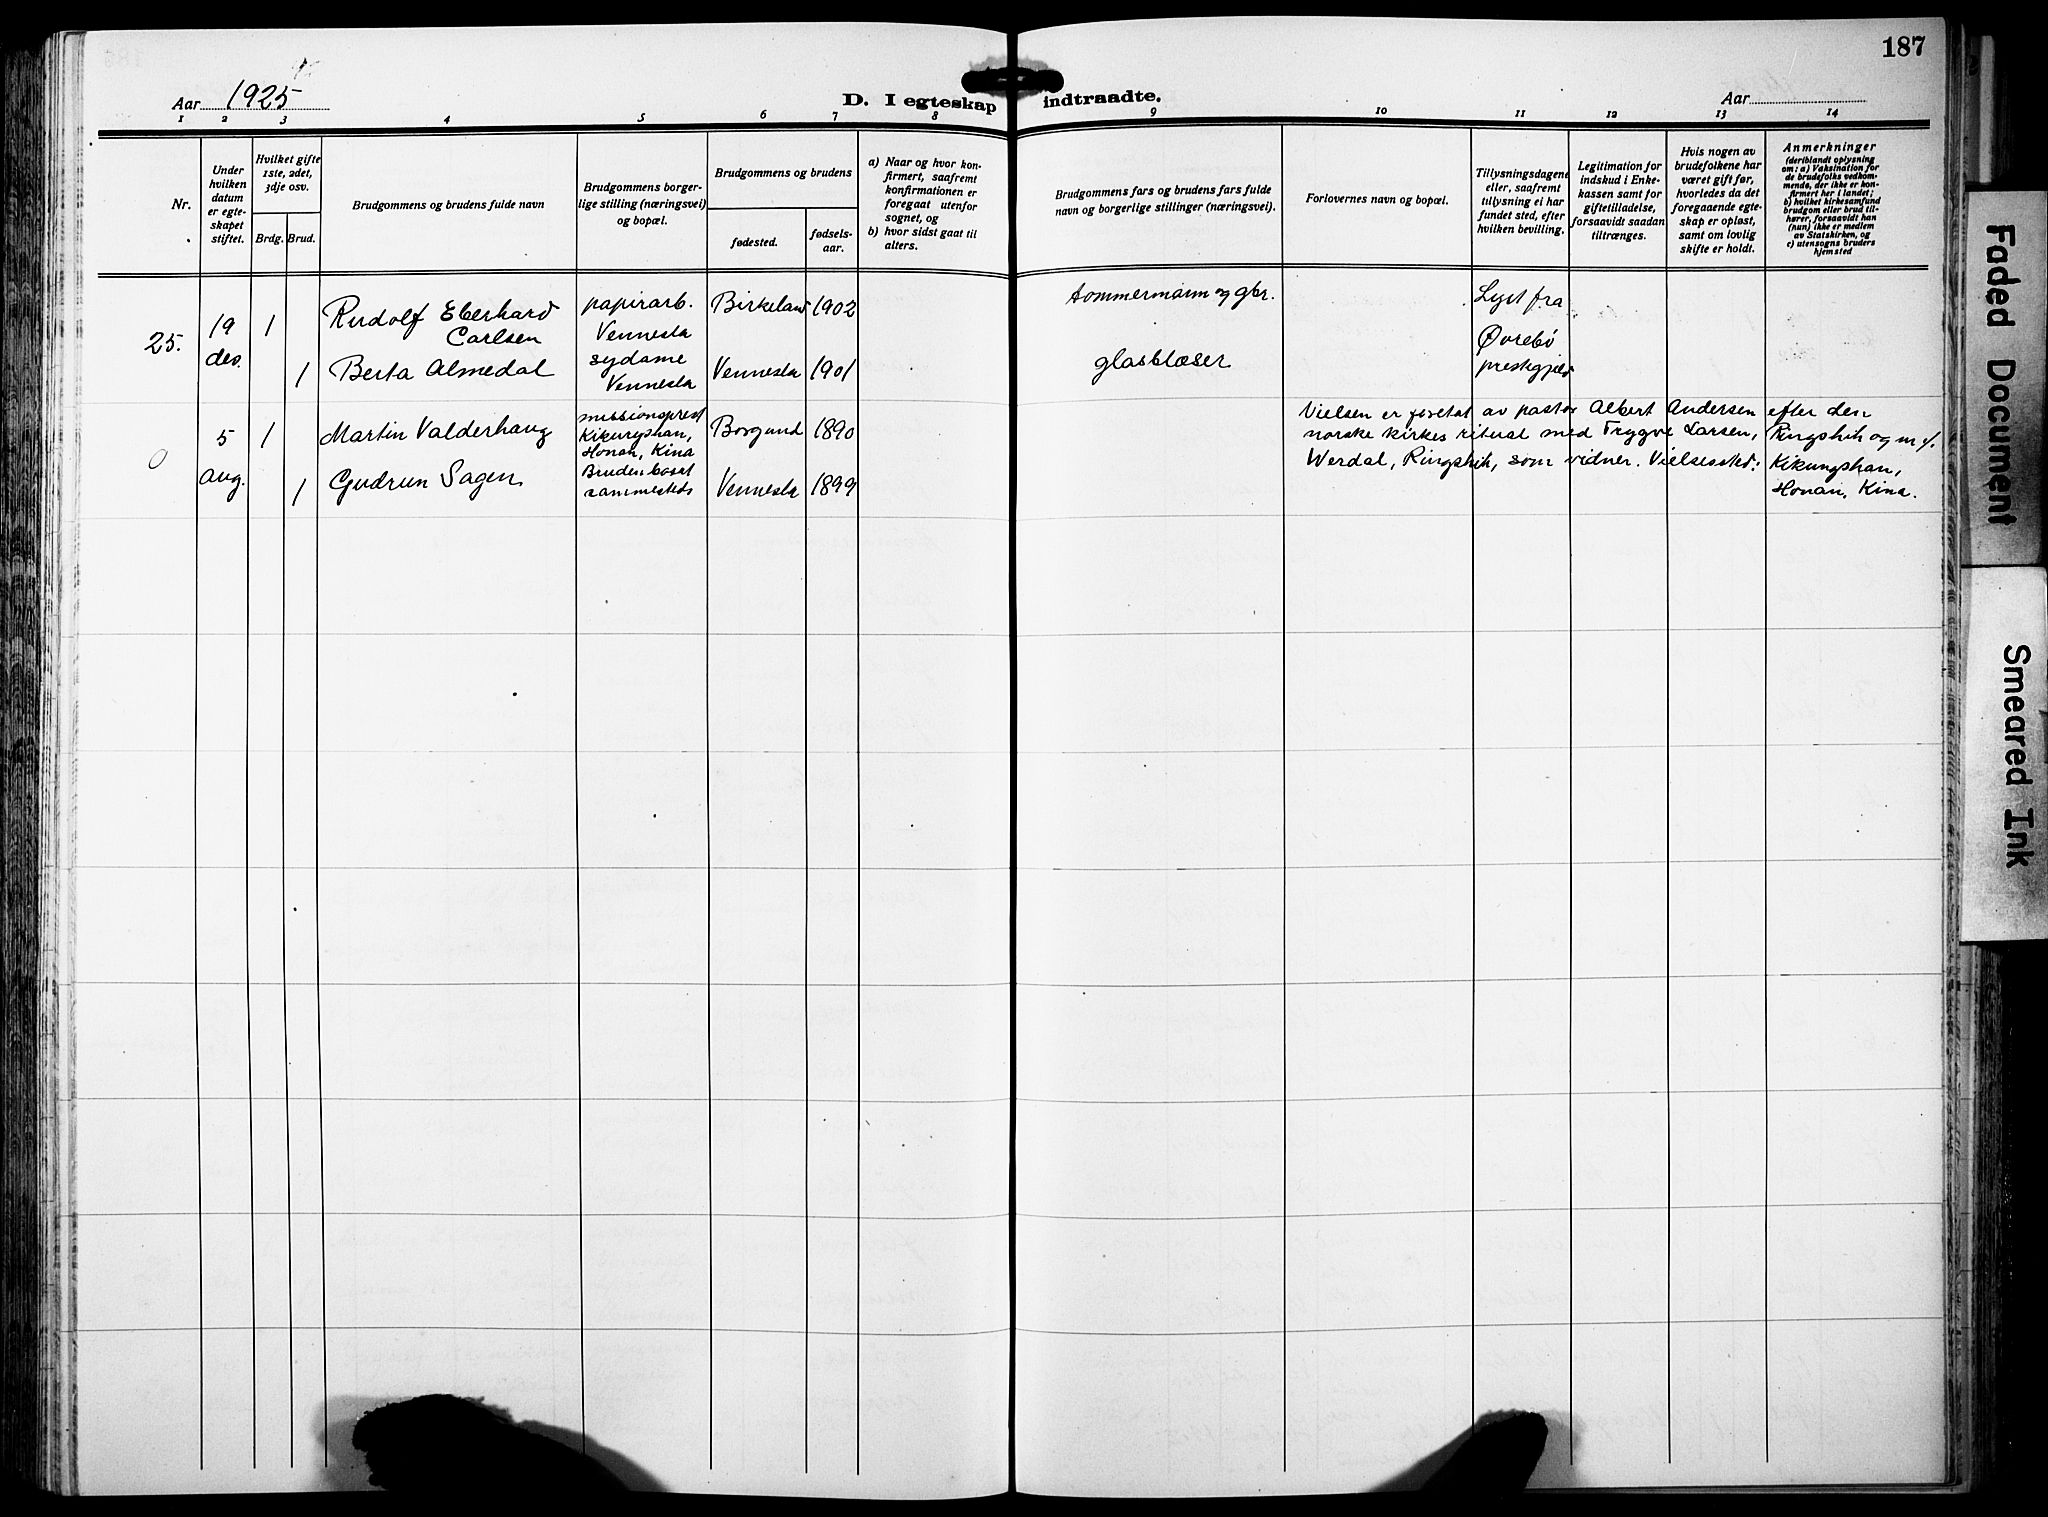 187
Aar 1925
D. I egteskap indtraadte.
Aar
1 2 3 4 5 6 7 8 9 10 11 12 13 14
Nr.
Under
hvilken
datum
er egte-
skapet
stiftet.
Hvilket gifte
1ste, 2det,
3dje osv.
Brdg. Brud.
Brudgommens og brudens fulde navn
Brudgommens borger-
lige stilling (næringsvei)
og bopæl.
Brudgommens og brudens
fødested.
fødsels-
aar.
a) Naar og hvor kon-
firmert, saafremt
konfirmationen er
foregaat utenfor
sognet, og
b) hvor sidst gaat til
alters.
Brudgommens fars og brudens fars fulde
navn og borgerlige stillinger (næringsvei).
Forlovernes navn og bopæl.
Tillysningsdagene
eller, saafremt
tillysning ei har
fundet sted, efter
hvilken bevilling.
Legitimation for
indskud i Enke-
kassen samt for
giftetilladelse,
forsaavidt saadan
tiltrænges.
Hvis nogen av
brudefolkene har
været gift før,
hvorledes da det
foregaaende egte-
skap er opløst,
samt om lovlig
skifte er holdt.
Anmerkninger
(deriblandt oplysning
om: a) Vaksination for
de brudefolks vedkom-
mende, der ikke er kon-
firmert her i landet;
b) hvilket kirkesamfund
brudgom eller brud til-
hører, forsaavidt han
(hun) ikke er medlem
av Statskirken, og
c) utensogns bruders
hjemsted
25.
19
des.
1
1
Rudolf Eberhard
Carlsen
Berta Almedal
papirarb.
Vennesla
sydame
Vennesla
Birkeland 1902
Vennesla 1901
tommermann og gbr.
glasblæser
Lyst fra
Øvrebø
prestegjeld
0
5
aug.
1
1
Martin Valderhaug
Gudrun Sagen
missionsprest
Kikungshan,
Honan, Kina
Bruden bosat
sammesteds
Borgund 1890
Vennesla 1899
Vielsen er foretat av pastor Albert Andersen efter den
norske kirkes ritual med Trygve Larsen, Ringshih og
Werdal, Ringshih, som vidner. Vielsessted: Kikungshan,
Honan, Kina.
Faded Document
Smeared Ink